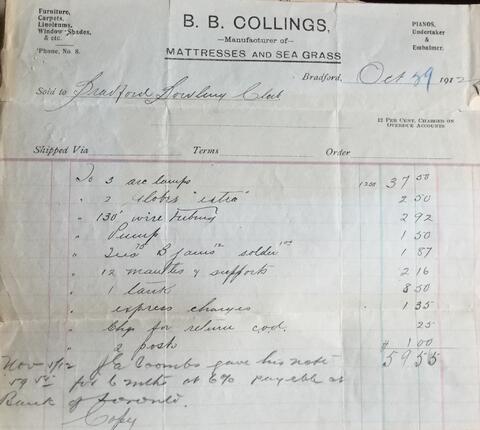 Furniture,
Carpets,
Linoleums,
Window Shades,
& etc.
'Phone, No. 8.
B. B. COLLINGS,
—Manufacturer of—
MATTRESSES AND SEA GRASS
PIANOS,
Undertaker
&
Embalmer.
Bradford, Oct 29 1912
Sold to Bradford Bowling Club
12 PER CENT. CHARGED ON
OVERDUE ACCOUNTS
Shipped Via Terms Order
To 3 arc lamps 1250 37 50
" 2 globes "extra" 2 50
" 130' wire Tubing 2 92
" Pump 1 50
" solder 1 87
" 12 mantles & supports 2 16
" 1 tank 8 50
" express charges 1 35
" Chgs for return c.o.d. 25
" 2 posts 1 00
$ 59 55
Nov 1/12 Coombs gave his note
59 55 for 6 mths at 6% payable at
Bank of Toronto.
Copy